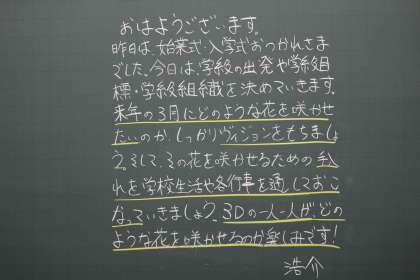 おはようございます。
昨日は、始業式・入学式おつかれさま
でした。今日は、学級の出発や学級目
標・学級組織を決めていきます。
来年の3月にどのような花を咲かせ
たいのか、しっかりヴィジョンをもちましょ
う。そして、その花を咲かせるための
れを学校生活や各行事を通しておこ
な。ていきましょう。3Dの一人一人が、どの
ような花を咲かせるのか楽しみです!
浩介